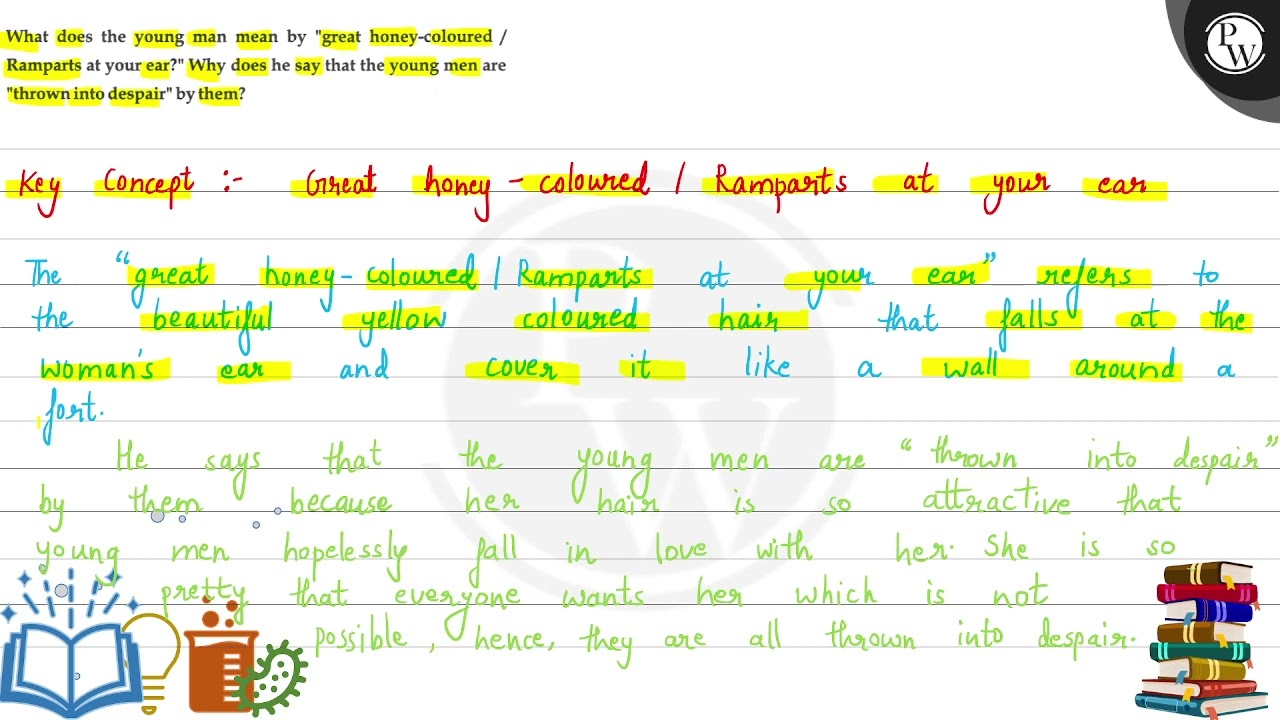 What does the young man mean by "great honey-coloured /
Ramparts at your ear?" Why does he say that the young men are
"thrown into despair" by them?
PW
Key Concept :- Great honey - coloured / Ramparts at your ear
The "great honey-coloured / Ramparts at your ear" refers to
the beautiful yellow coloured hair that falls at the
woman's ear and cover it like a wall around a
fort.
He says that the young men are "thrown into despair"
by them because her hair is so attractive that
young men hopelessly fall in love with her. She is so
pretty that everyone wants her which is not
possible, hence, they are all thrown into despair.